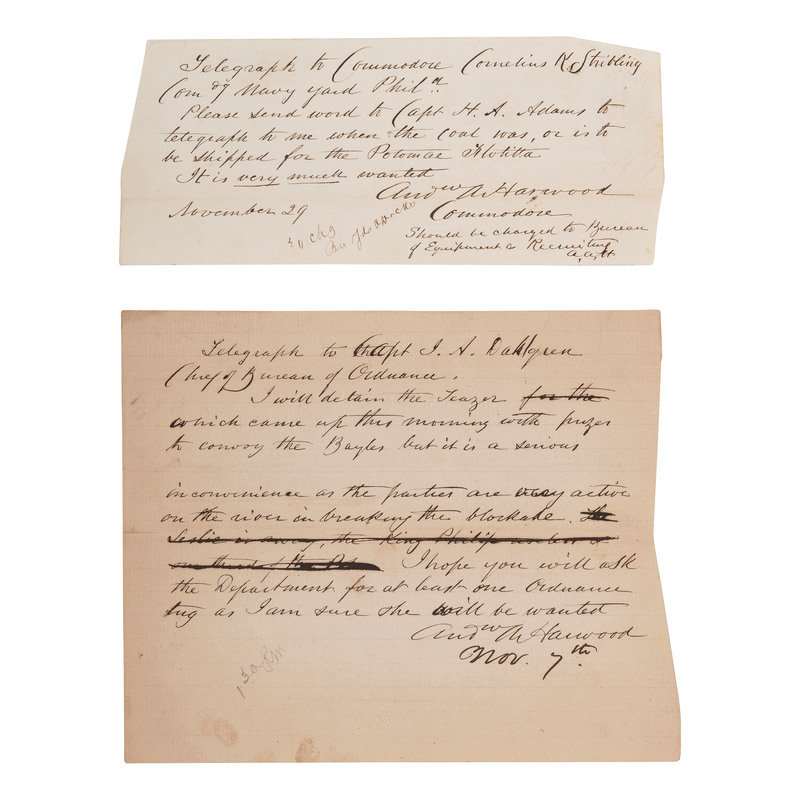 Telegraph to Commodore Cornelius K. Stribling
Comdg Navy yard Phila.
Please send word to Capt H. A. Adams to
telegraph to me when the coal was, or is to
be shipped for the Potomac Flotilla
It is very much wanted
Andw A Harwood
Commodore
November 29
Should be charged to Bureau
of Equipment & Recruiting
A.A.H
30 chg
Telegraph to Capt J. A. Dahlgren
Chief of Bureau of Ordnance.
I will detain the Teazer for the
which came up this morning with prizes
to convoy the Bayles but it is a serious
inconvenience as the parties are very active
on the river in breaking the blockade. The
Leslie is away, the King Philip
one third of the I hope you will ask
the Department for at least one Ordnance
tug as I am sure she will be wanted
Andw A Harwood
Nov. 7th
1,30 PM